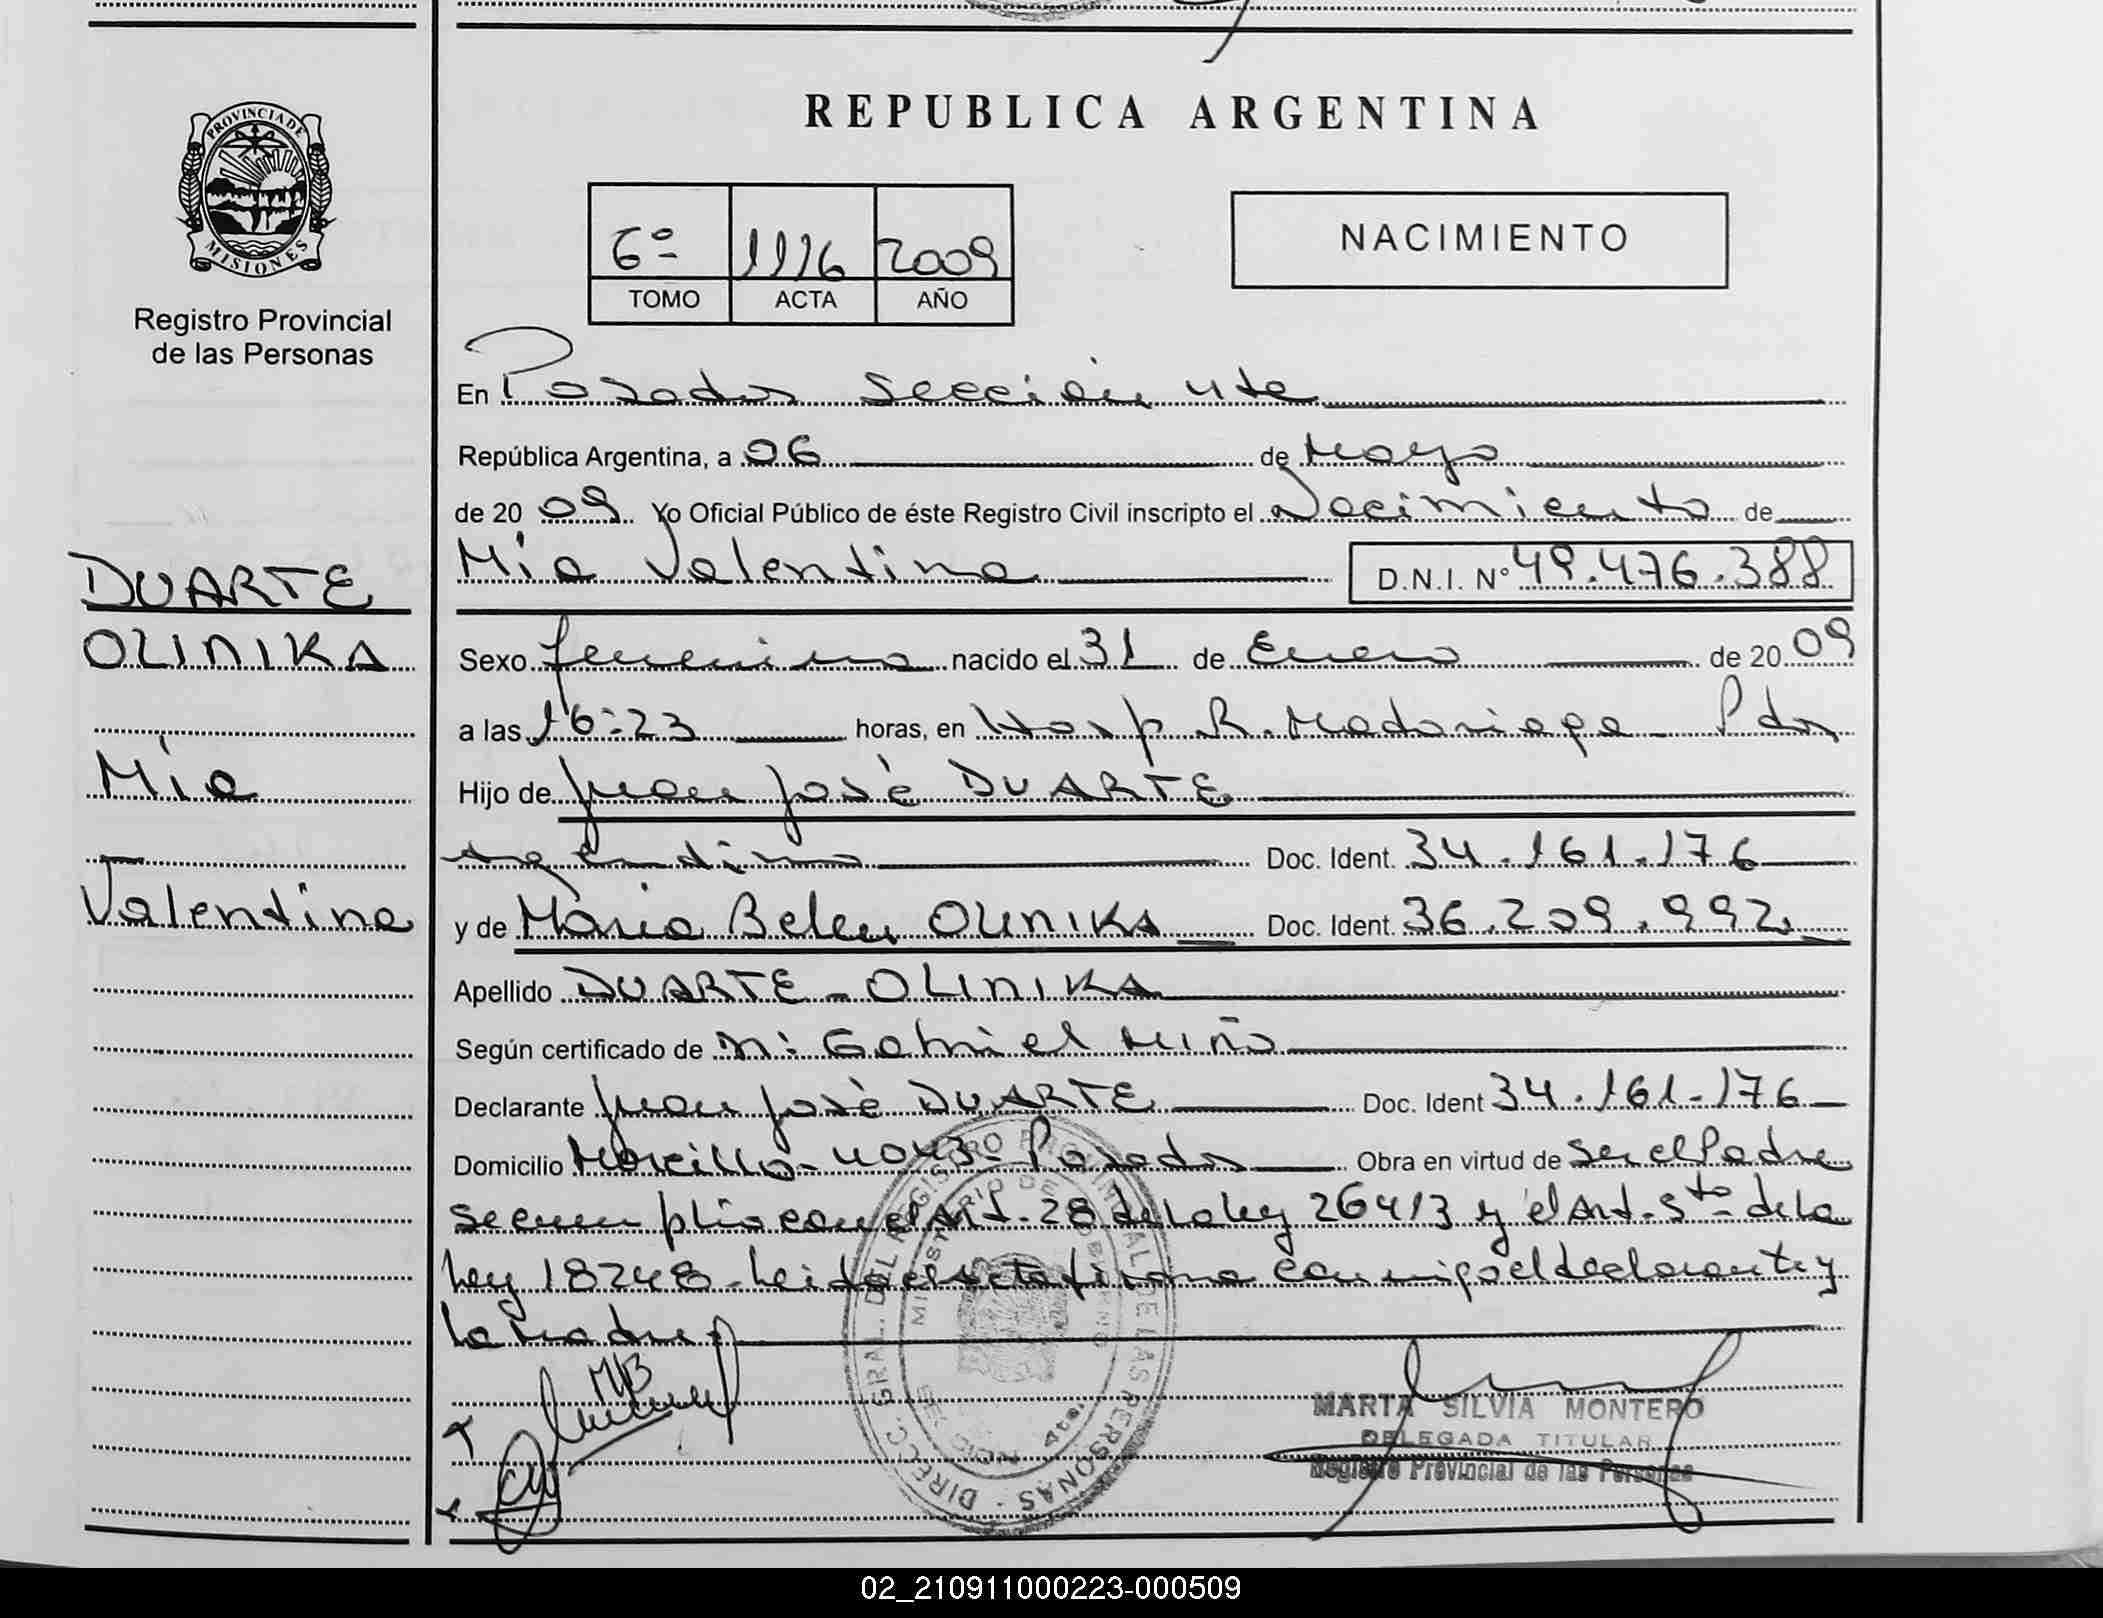 REPUBLICA ARGENTINA
PROVINCIA DE
MISIONES
Registro Provincial
de las Personas
6º 1116 2009
TOMO ACTA AÑO
NACIMIENTO
En Posadas sección 4ta
República Argentina, a 06 de Mayo
de 2009 Yo Oficial Público de éste Registro Civil inscripto el Nacimiento de
Mía Valentina D.N.I. Nº 49.476.388
DUARTE
OLINIKA
Mía
Valentina
Sexo femenino nacido el 31 de Enero de 2009
a las 16:23 horas, en Hosp R. Madariaga Pdas
Hijo de Juan José DUARTE
argentino Doc. Ident. 34.161.176
y de María Belen OLINIKA Doc. Ident. 36.209.992
Apellido DUARTE - OLINIKA
Según certificado de Gabriel Miño
Declarante Juan José DUARTE Doc. Ident 34.161.176
Domicilio 4043 - Posadas Obra en virtud de ser el Padre
se cumplio con el Art. 28 de la ley 26413 y el Art. 5to de la
ley 18248 - Leida el acta firma conmigo el declarante y
la madre
DIRECC. GRAL. DEL REGISTRO PROVINCIAL DE LAS PERSONAS
MINISTERIO DE GOBIERNO
4ta.
MARTA SILVIA MONTERO
DELEGADA TITULAR
Registro Provincial de las Personas
02_210911000223-000509